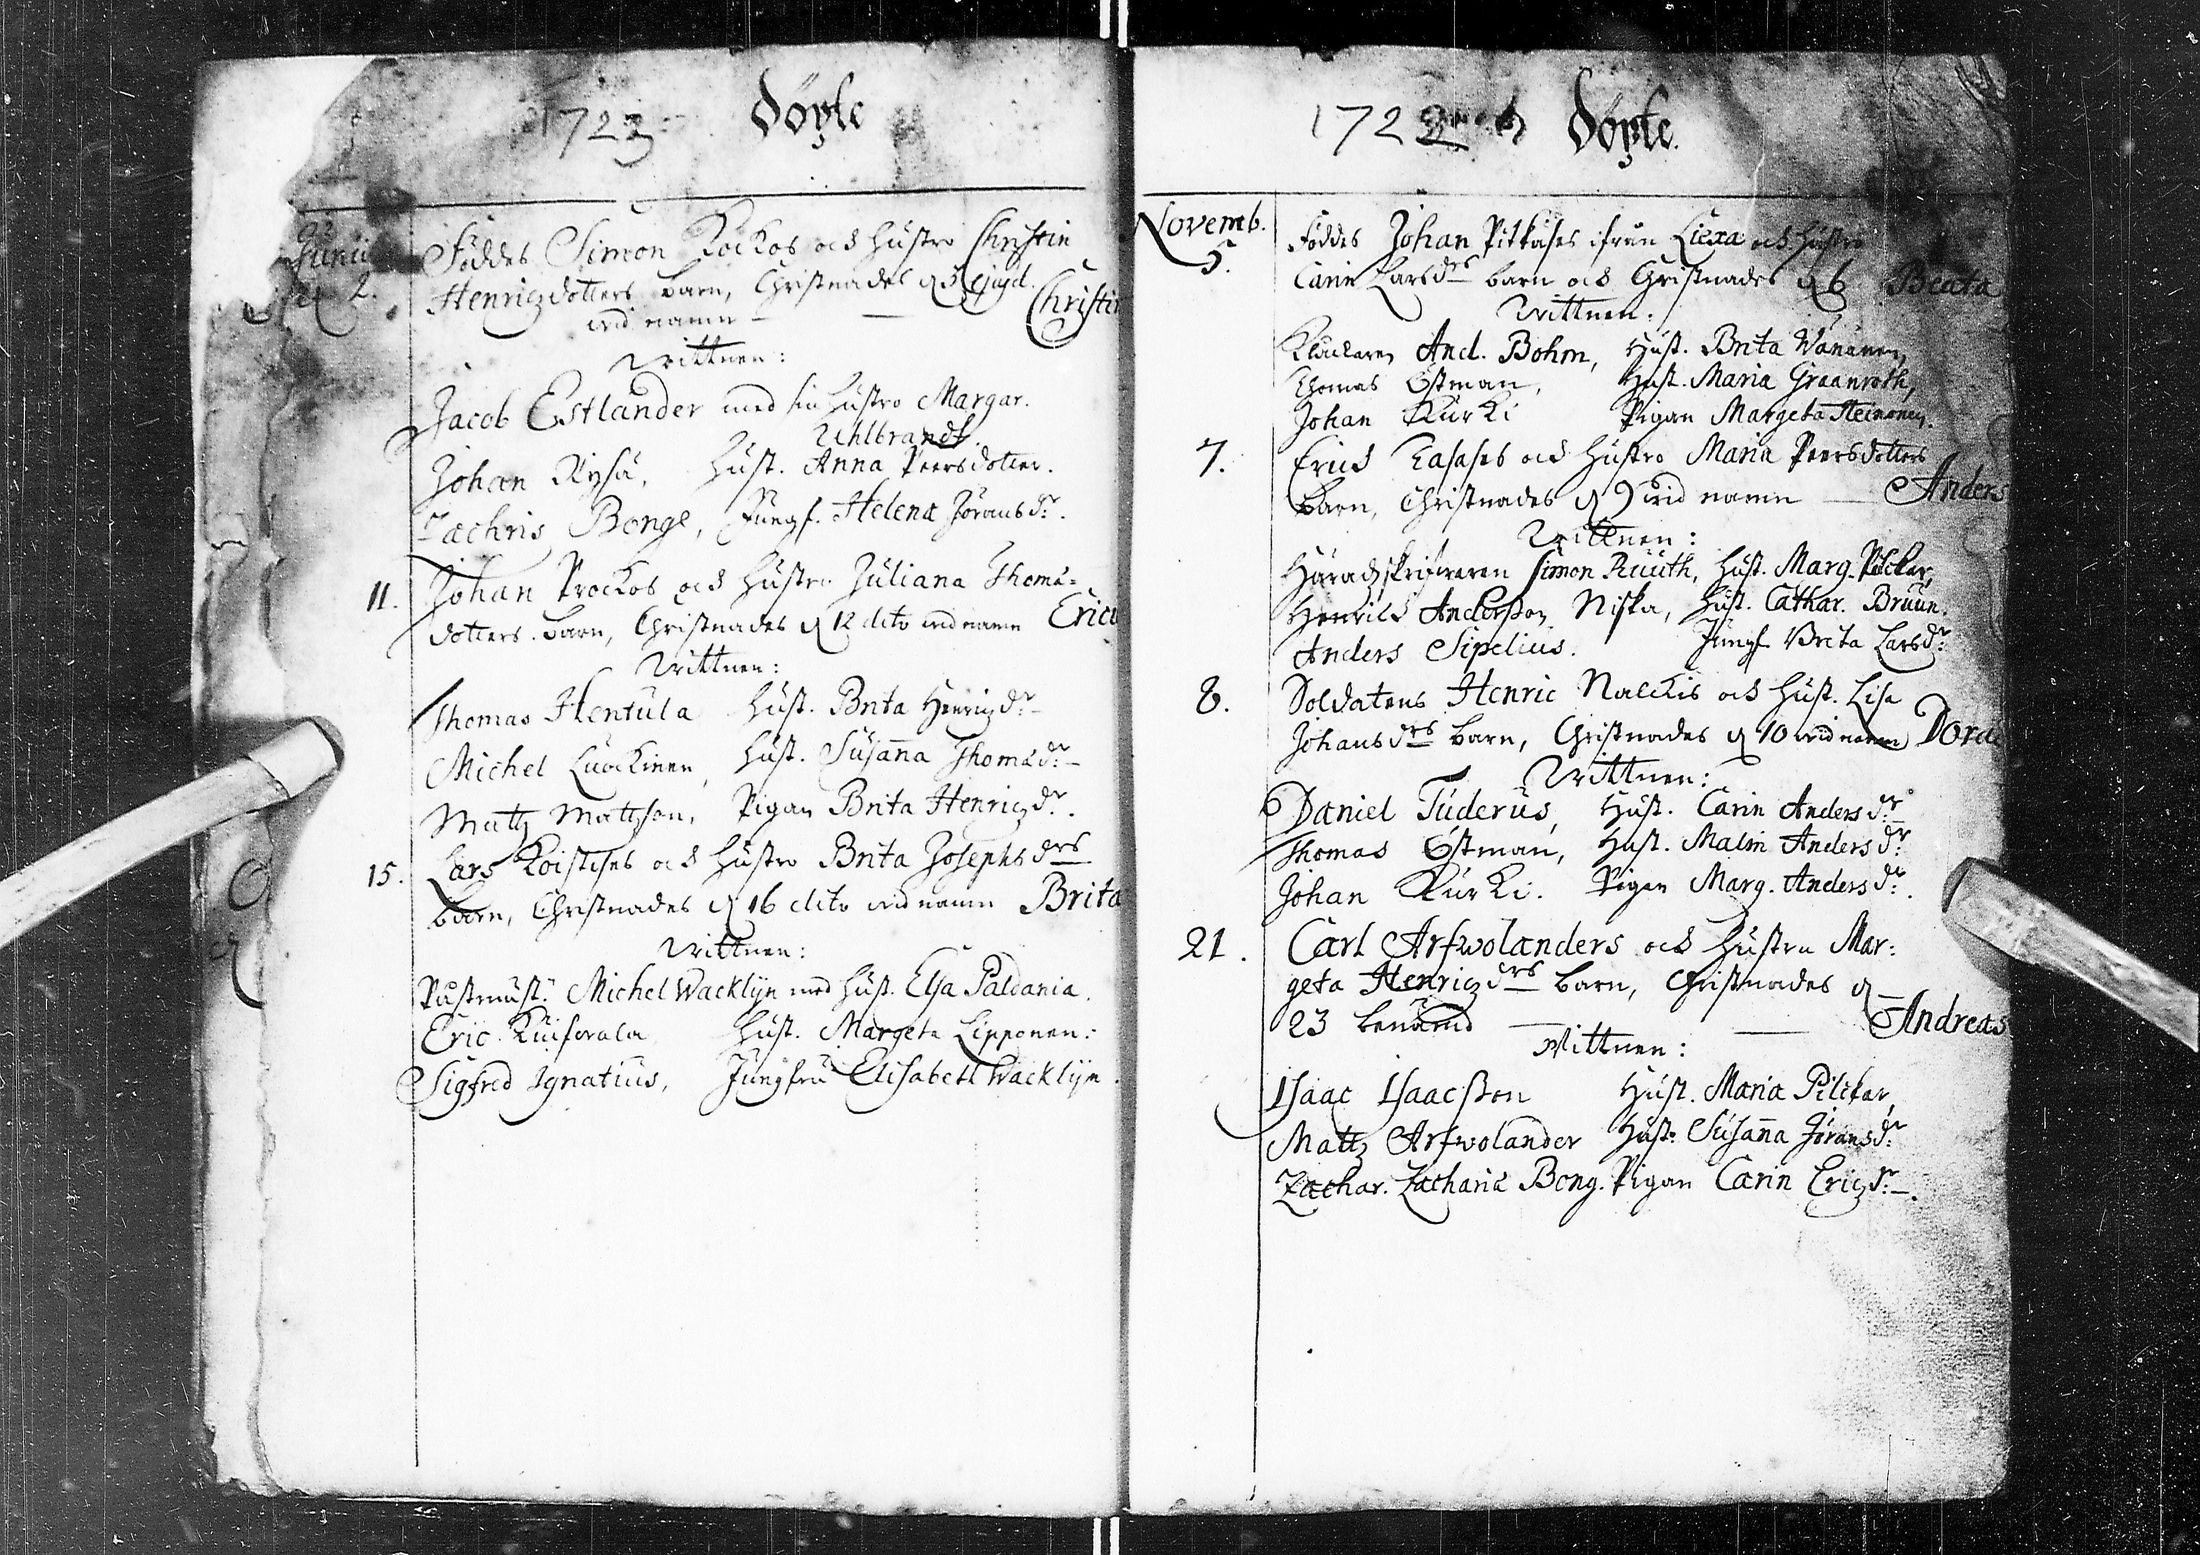 1723 Döpte
Junii
2. Föddes Simon Kockos och hustro Christin
Henrichzdotters barn, Christnades d 3 ejusd.
wid namn — — Christin
Wittnen:
Jacob Estlander med sin hustro Margar.
Uhlbrandt.
Johan Rysä, hust. Anna Peersdotter.
Zachris Bonge, Jungf. Helena Jöransdr.
11. Johan Prockos och hustro Juliana Thomæ-
dotters barn, Christnades d 12 dito wid namn Ericu
Wittnen:
Thomas Hentula hust. Brita Henrichzdr
Michel Luackinen, hust. Susanna Thomædr
Mattz Mattzson, Pigan Brita Henrichzdr.
15. Lars Koistises och hustro Brita Josephsdrs
barn, Christnades d 16 dito wid namn Brita
Wittnen:
Påstmäst: Michel Wacklijn med hust. Elsa Paldania.
Eric hust. Margeta Lipponen:
Sigfred Ignatius, Jungfru Elisabeth Wacklijn.
1722 Döpte.
Novemb.
5. Föddes Johan Pitkäses ifrån Liexa och hustro
Carin Larsdrs barn och Christnades d 6 Beata
Wittnen:
Klockaren And. Bohm, Hust. Brita Wänänen,
Thomas Östman, Hust. Maria Graanroth,
Johan Kurki Pigan Margeta Heinonen.
7. Erich Kasases och Hustro Maria Peersdotters
barn, Christnades d 9 wid namn — Anders
Wittnen:
Häradzskrifwaren Simon Ruuth, hust. Marg. Pilckar,
Henrich Anderßon Niska, hust. Cathar. Bruun.
Anders Sipelius. Jungf. Brita Larsdr:
8. Soldatens Henric Nalckis och Hust. Lisa
Johansdrs barn, Christnades d 10 wid namn Dord
Wittnen:
Daniel Tuderus, Hust. Carin Andersdr
Thomas Östman, Hust. Malin Andersdr:
Johan Kurki. Pigan Marg. Andersdr.
21. Carl Arfwolanders och hustru Mar:
geta Henrichzdrs barn, Christnades d
23 benämd — — Andreas
Wittnen:
Isaac Isaacßon Hust. Maria Pilckar,
Mattz Arfwolander Hust. Susanna Jöransdr:
Zachar. Zachariä Bong. Pigan Carin Erichzdr.